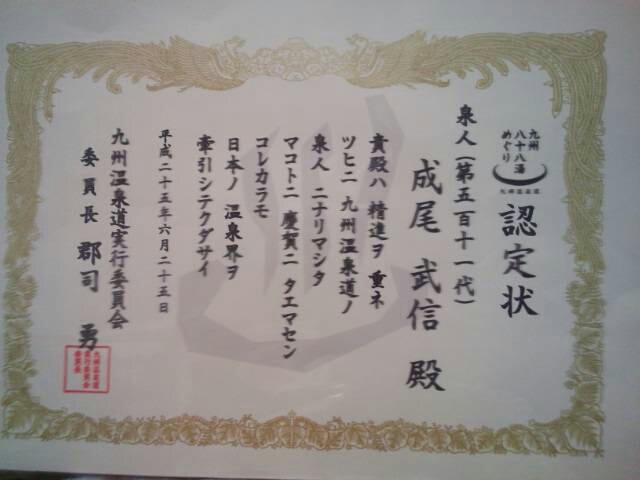 九州
八十八湯
めぐり
九州温泉道
認定状
泉人(第五百十一代)
成尾 武信 殿
貴殿ハ 精進ヲ 重ネ
ツヒニ 九州温泉道ノ
泉人 ニナリマシタ
マコトニ 慶賀ニ タエマセン
コレカラモ
日本ノ 温泉界ヲ
牽引シテクダサイ
平成二十五年六月二十五日
九州温泉道実行委員会
委員長 郡司 勇
九州温泉道
実行委員会
委員長